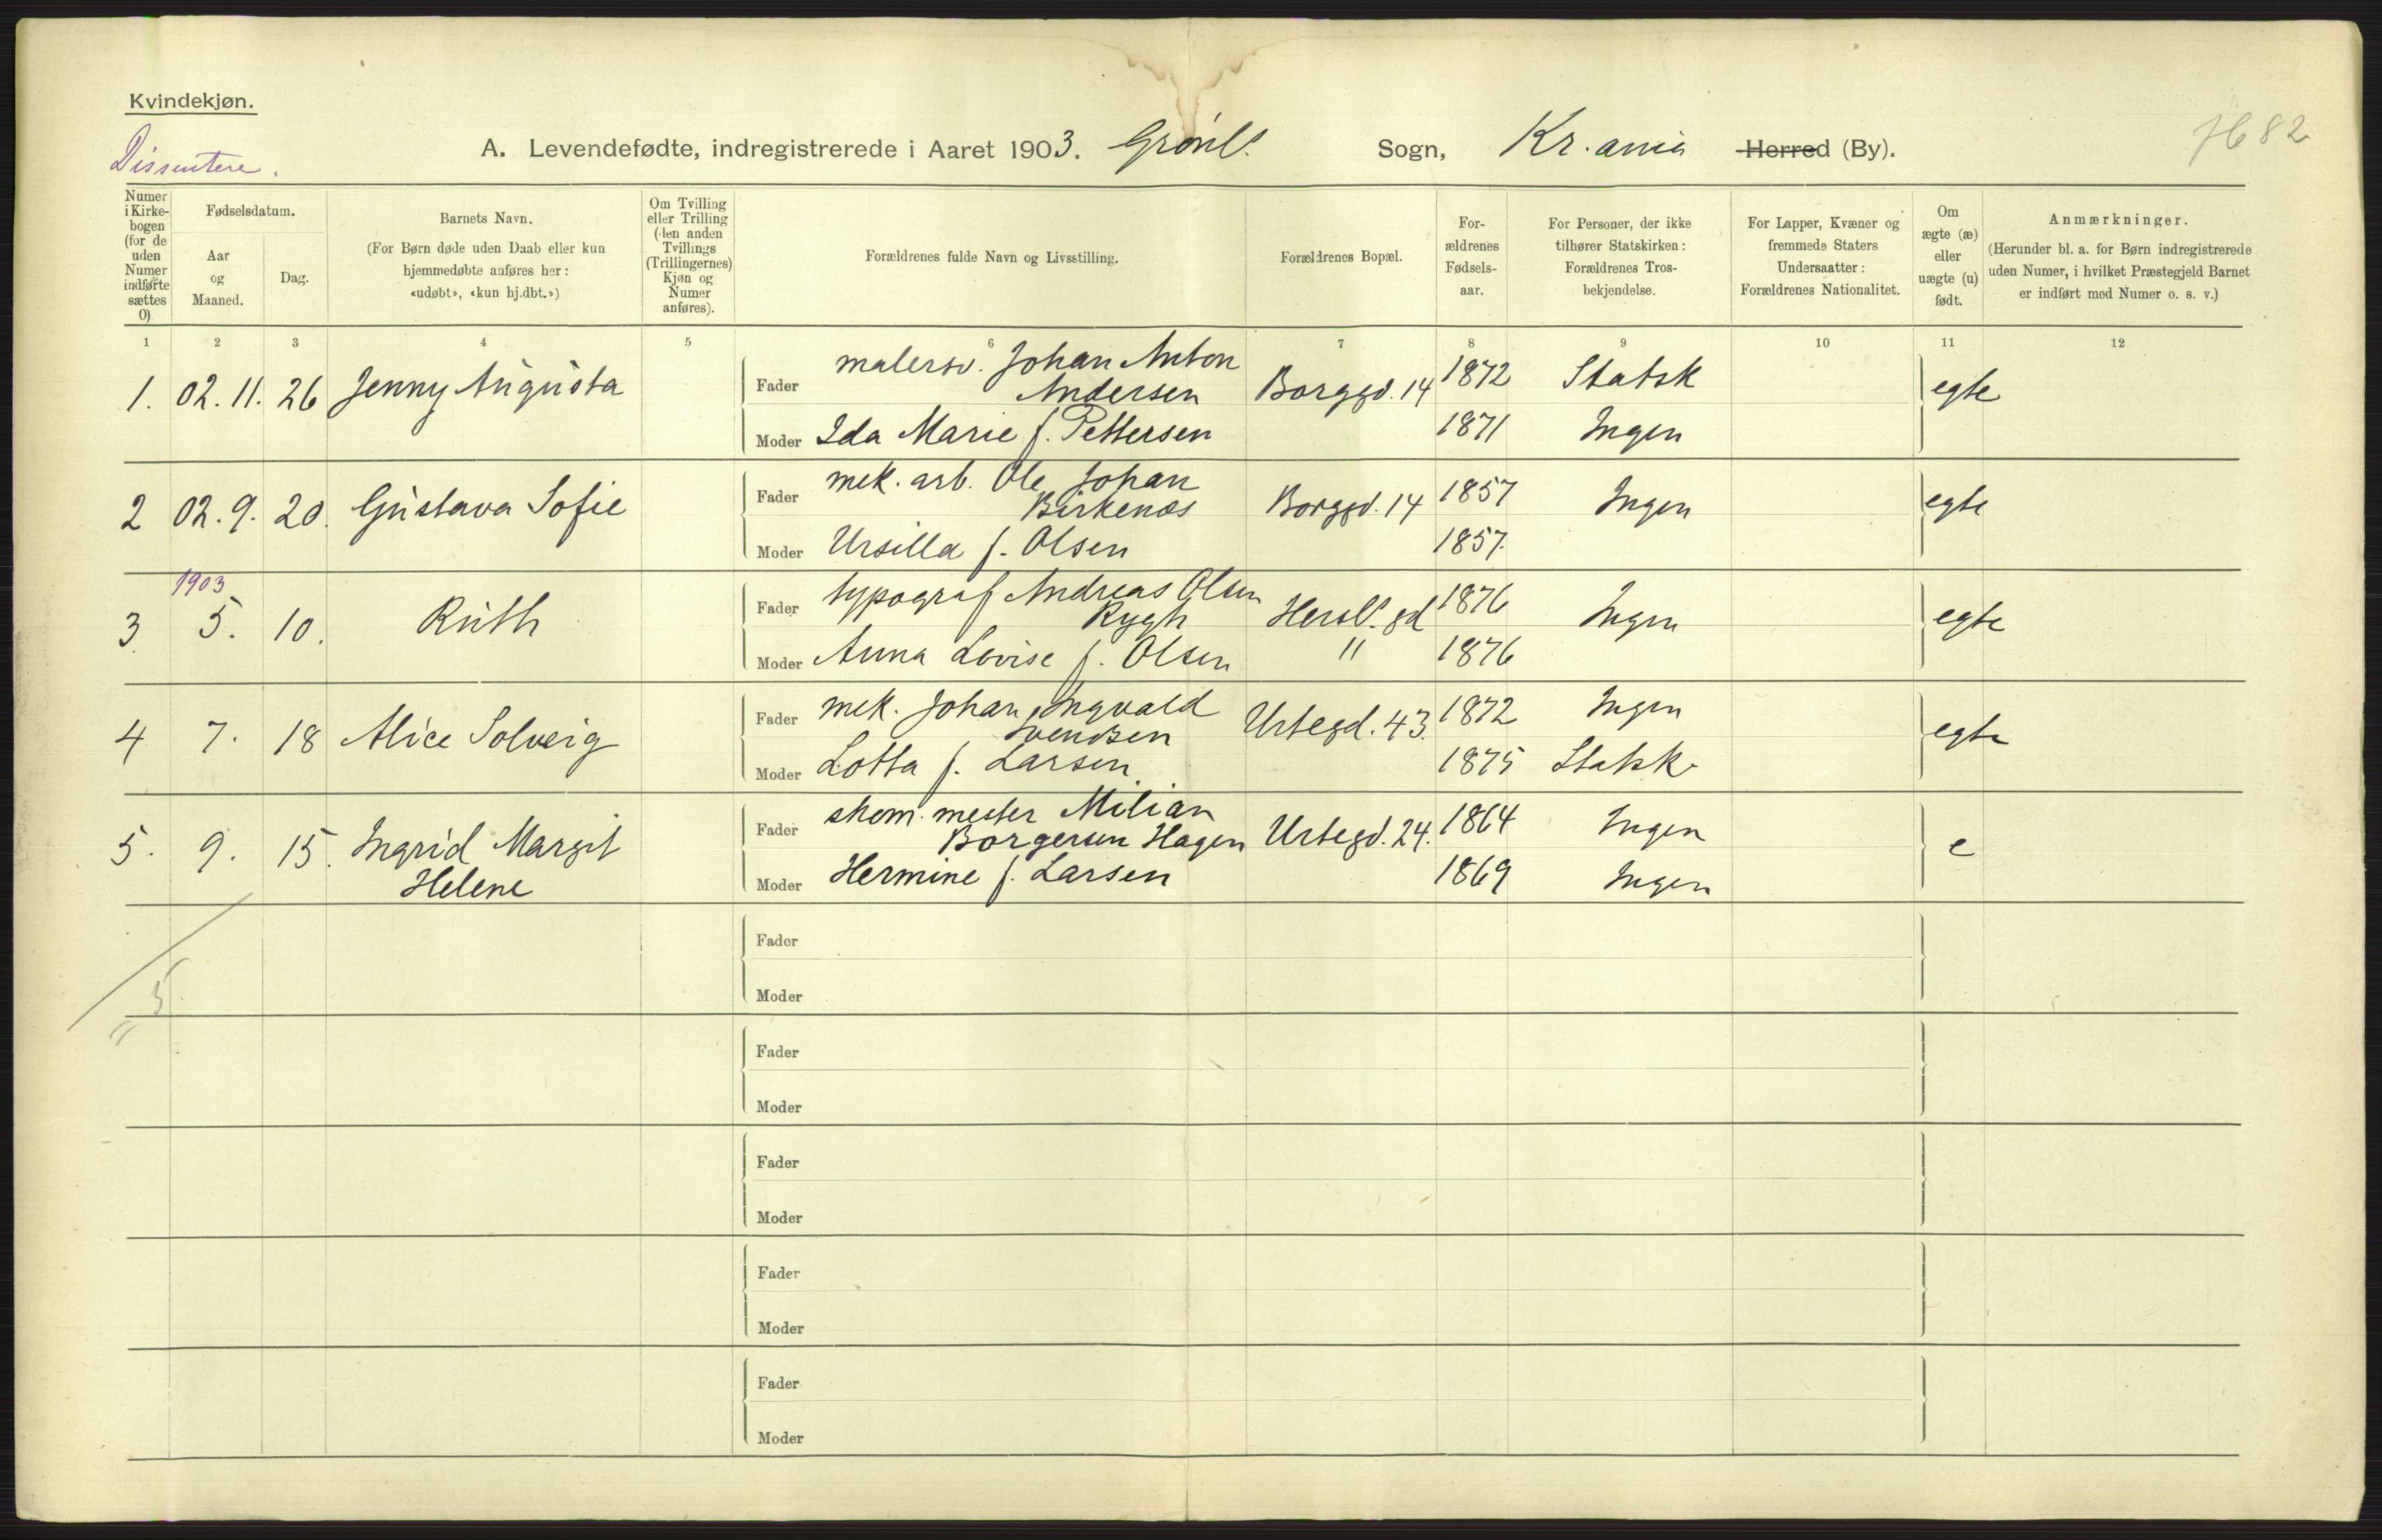 Kvindekjøn.
Dissentere.
A. Levendefødte, indregistrerede i Aaret 1903. Grønl. Sogn, Kr.ania Herred (By).
7682
Numer i Kirke-bogen (for de uden Numer indførte sættes 0)
Fødselsdatum.
Aar og Maaned.
Dag.
Barnets Navn.
(For Børn døde uden Daab eller kun hjemmedøbte anføres her: «udøbt», «kun hj.dbt.»)
Om Tvilling eller Trilling (den anden Tvillings (Trillingernes) Kjøn og Numer anføres).
Forældrenes fulde Navn og Livsstilling.
Forældrenes Bopæl.
For-ældrenes Fødsels-aar.
For Personer, der ikke tilhører Statskirken: Forældrenes Tros-bekjendelse.
For Lapper, Kvæner og fremmede Staters Undersaatter: Forældrenes Nationalitet.
Om ægte (æ) eller uægte (u) født.
Anmærkninger.
(Herunder bl. a. for Børn indregistrerede uden Numer, i hvilket Præstegjeld Barnet er indført med Numer o. s. v.)
1 2 3 4 5 6 7 8 9 10 11 12
1. 02. 11. 26 Jenny Augusta Fader malersv. Johan Anton Andersen Borggd. 14 1872 Statsk egte
Moder Ida Marie f. Pettersen 1871 Ingen
2 02. 9. 20. Gustava Sofie Fader mek. arb. Ole Johan Birkenæs Borggd. 14 1857 Ingen egte
Moder Ursilla f. Olsen 1857.
1903
3 5. 10. Ruth Fader typograf Andreas Olsen Rygh Hersl. gd 1876 Ingen egte
Moder Anna Lovise f. Olsen " 1876
4 7. 18 Alice Solveig Fader mek. Johan Ingvald Svendsen Urtegd. 43. 1872 Ingen egte
Moder Lotta f. Larsen. 1875 Statsk.
5. 9. 15. Ingrid Margit Helene Fader skom. mester Milian Borgersen Hagen Urtegd. 24. 1864 Ingen e
Moder Hermine f. Larsen 1869 Ingen
5
Fader
Moder
Fader
Moder
Fader
Moder
Fader
Moder
Fader
Moder